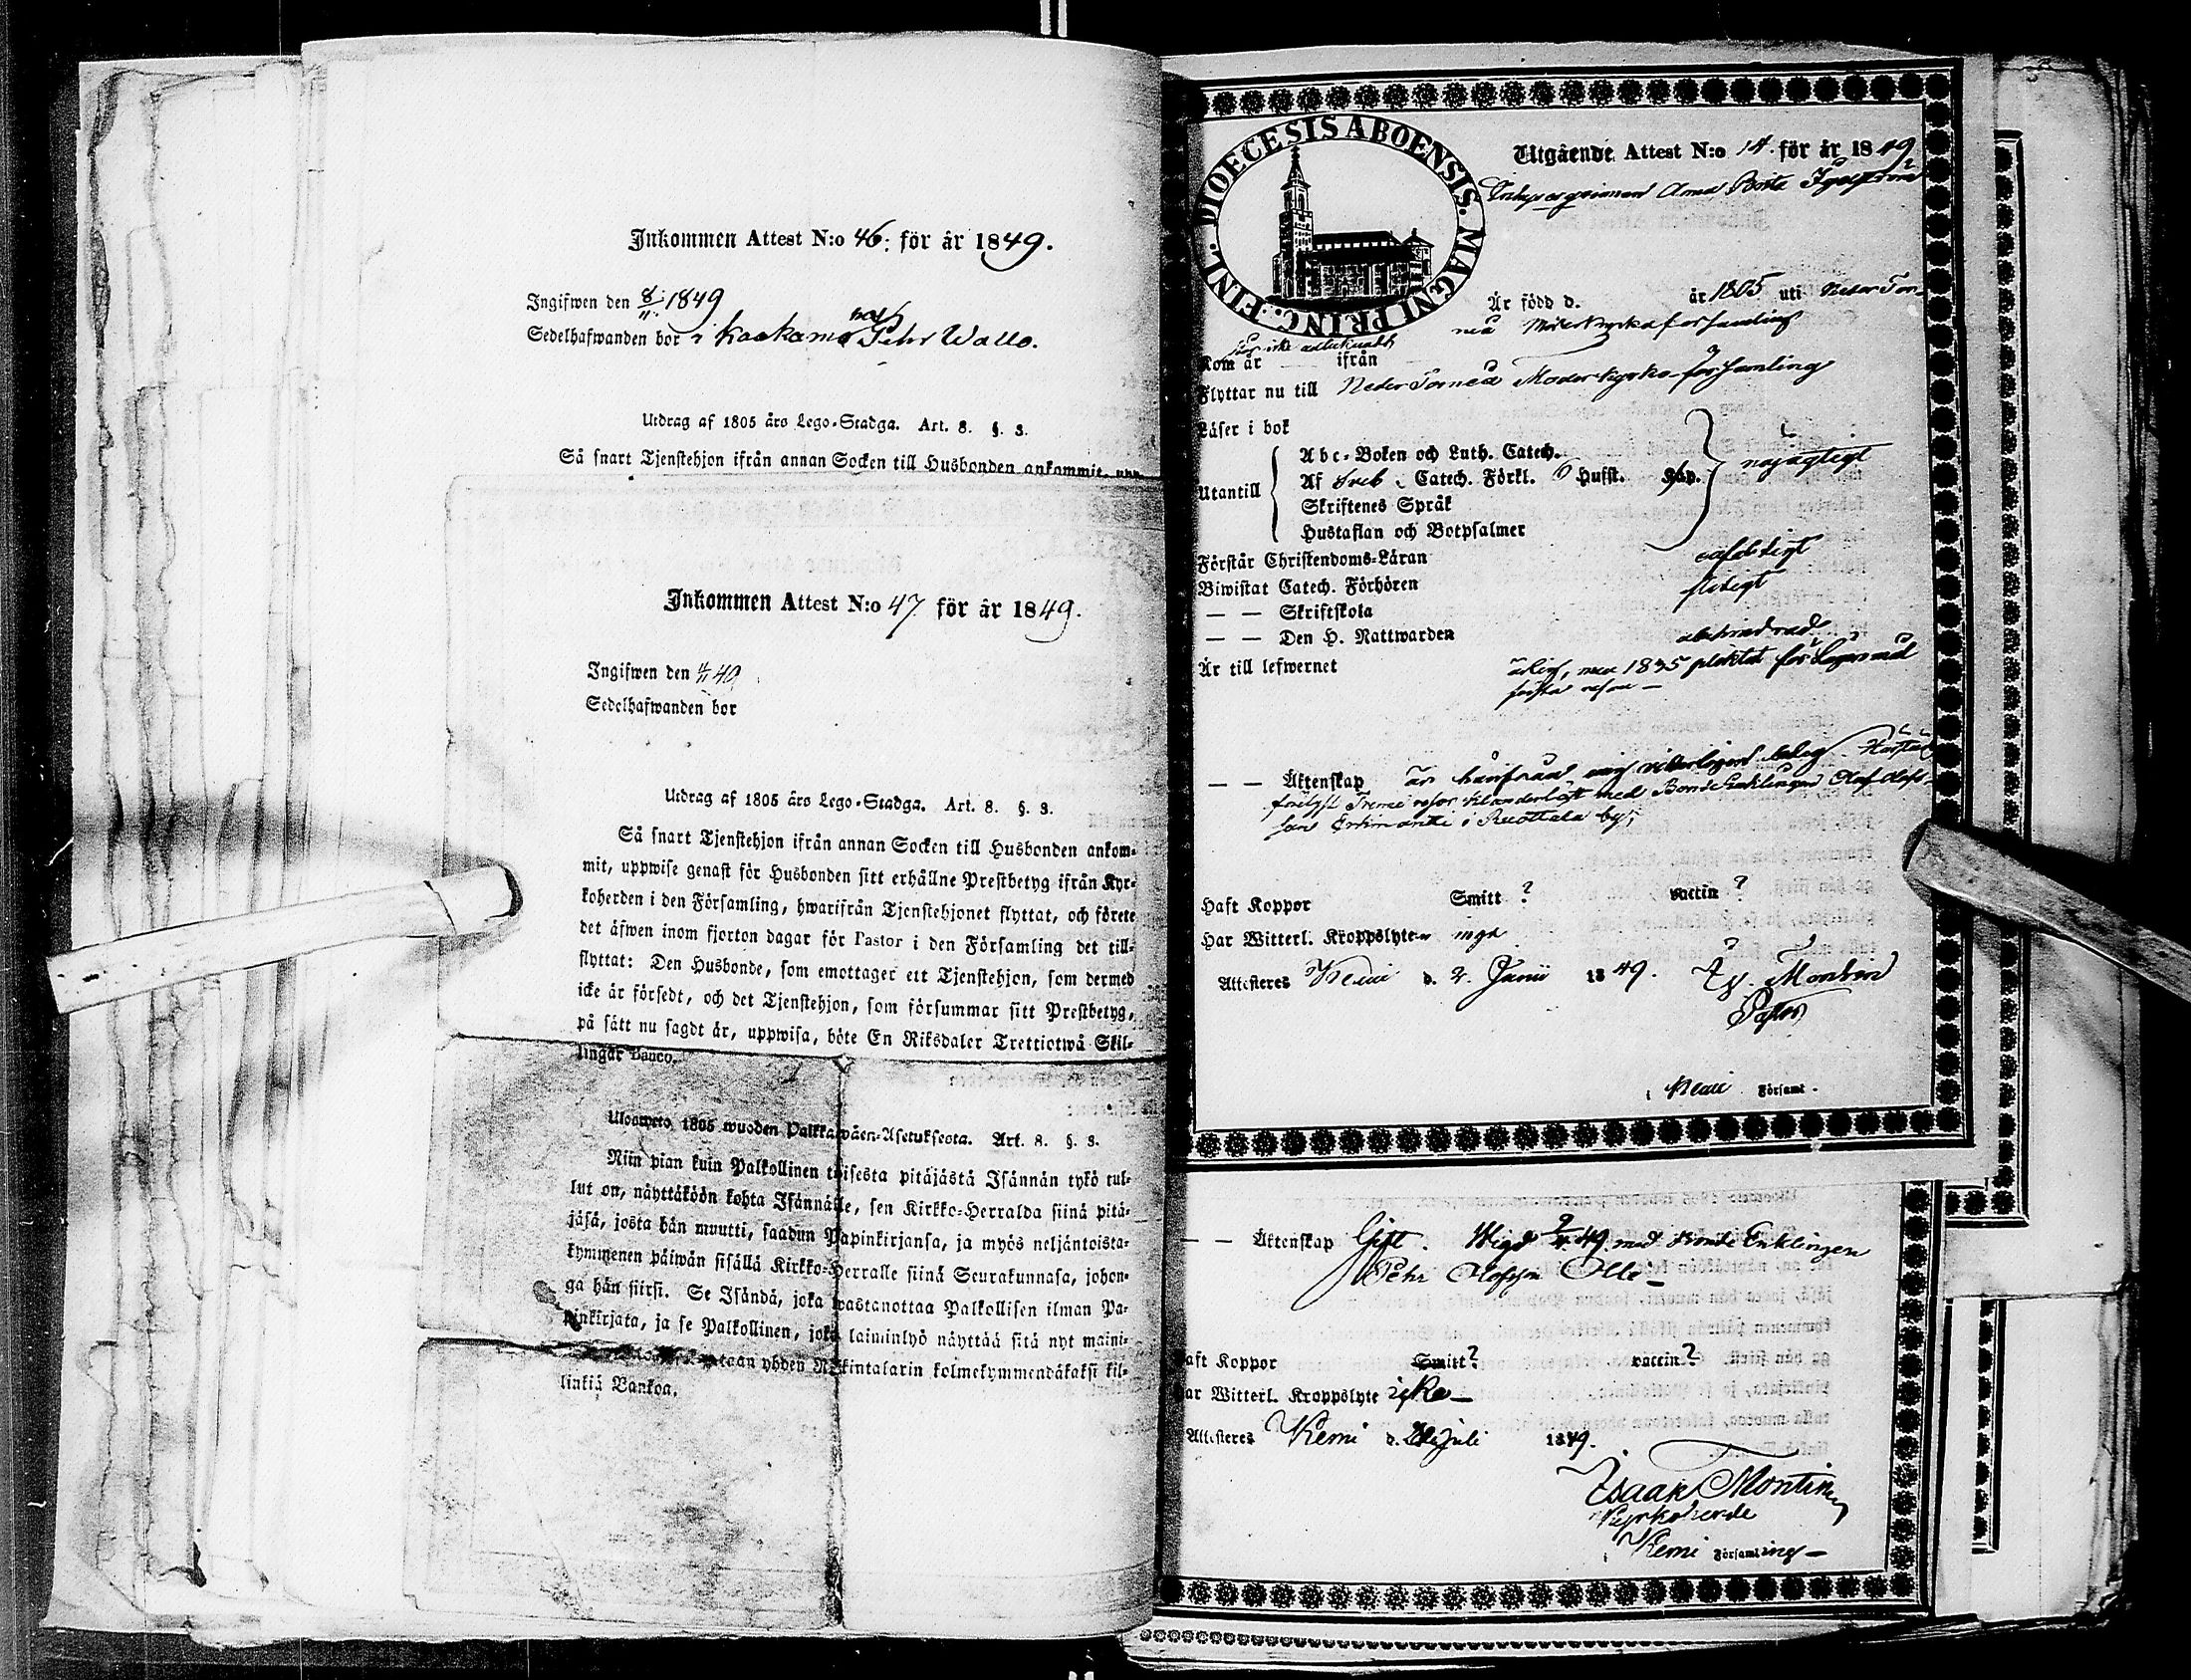 Inkommen Attest N:o 46: för år 1849.
Ingifwen den 8/11 1849
Sedelhafwanden bor i Kaakamo hos Pehr Wallo.
Utdrag af 1805 års Lego-Stadga. Art. 8. §. 3.
Så snart Tjenstehjon ifrån annan Socken till Husbonden ankommit, upp
Inkommen Attest N:o 47 för år 1849.
Ingifwen den 11/11 49
Sedelhafwanden bor
Utdrag af 1805 års Lego-Stadga. Art. 8. §. 3.
Så snart Tjenstehjon ifrån annan Socken till Husbonden ankom-
mit, uppwise genast för Husbonden sitt erhållne Prestbetyg ifrån Kyr-
koherden i den Församling, hwarifrån Tjenstehjonet flyttat, och förete
det äfwen inom fjorton dagar för Pastor i den Församling det till-
flyttat: Den Husbonde, som emottager ett Tjenstehjon, som dermed
icke är försedt, och det Tjenstehjon, som försummar sitt Prestbetyg,
på sätt nu sagdt är, uppwisa, böte En Riksdaler Trettiotwå Skil-
lingar Banco.
Ulosweto 1805 wuoden Palkkawäen-Asetuksesta. Art. 8. §. 3.
Niin pian kuin Palkollinen toisesta pitäjästä Isännän tykö tul-
lut on, näyttäköön kohta Isännälle, sen Kirkko-Herralda siinä pitä-
jäsä, josta hän muutti, saadun Papinkirjansa, ja myös neljäntoista-
kymmenen päiwän sisällä Kirkko-Herralle siinä Seurakunnasa, johon-
ga hän siirsi. Se Isändä, joka wastanottaa Palkollisen ilman Pa-
pinkirjata, ja se Palkollinen, joka laiminlyö näyttää sitä nyt maini-
yhden Riikintalarin kolmekymmendäkaksi kil-
linkiä Bankoa.
DIOECESIS ABOENSIS. MAGNI PRINC. FINL.
Utgående Attest N:o 14. för år 1849
Anna Brita
Är född d. år 1805 uti Neder Tor-
neå Moderkyrkoförsamling
Kom år ifrån
Flyttar nu till Neder Torneå Moderkyrko-församling
Läser i bok
Utantill
Abc-Boken och Luth. Catech.
Af Sveb. Catech. Förkl. 6 Hufst. Kap.
Skriftenes Språk
Hustaflan och Botpsalmer
nöjagtigt
Förstår Christendoms-Läran
Biwistat Catech. Förhören flitigt
— — Skriftskola
— — Den H. Nattwarden obehindrad
Är till lefwernet ärlig, men 1835 pliktat för Lägersmål
första resan —
— — Äktenskap är
resor med Bonde Enklingen Olof Olofs-
son i Ruottala by;
Haft Koppor Smitt? vaccin?
Har Witterl. Kroppslyte inga
Attesteres Kemi d. 2. Junii 1849. Is. Montin
Pastor
i Kemi Församl.
— — Äktenskap Gift. Wigd 2/4 49. med Bonde Enklingen
Pehr Olofsson Olli —
aft Koppor Smitt? vaccin?
ar Witterl. Kroppslyte icke —
Attesteres Kemi d. Juli 1849.
Isaak Montin
Kyrkoherde
i Kemi Församling —